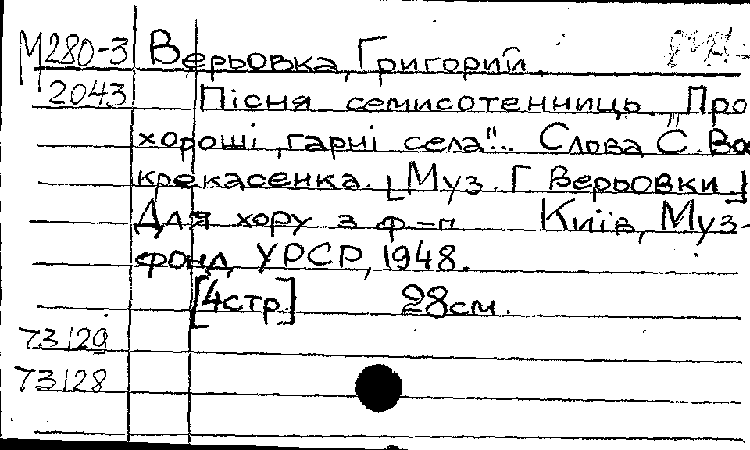 М280-3 Верьовка, Григорий.
2043 Пісня семисотенниць „Про
хороші, гарні села". Слова С. Во-
крекасенка. [Муз. Г. Верьовки.]
Для хору з ф-п Київ, Муз-
фонд УРСР, 1948.
[4стр] 28см.
73129
73128